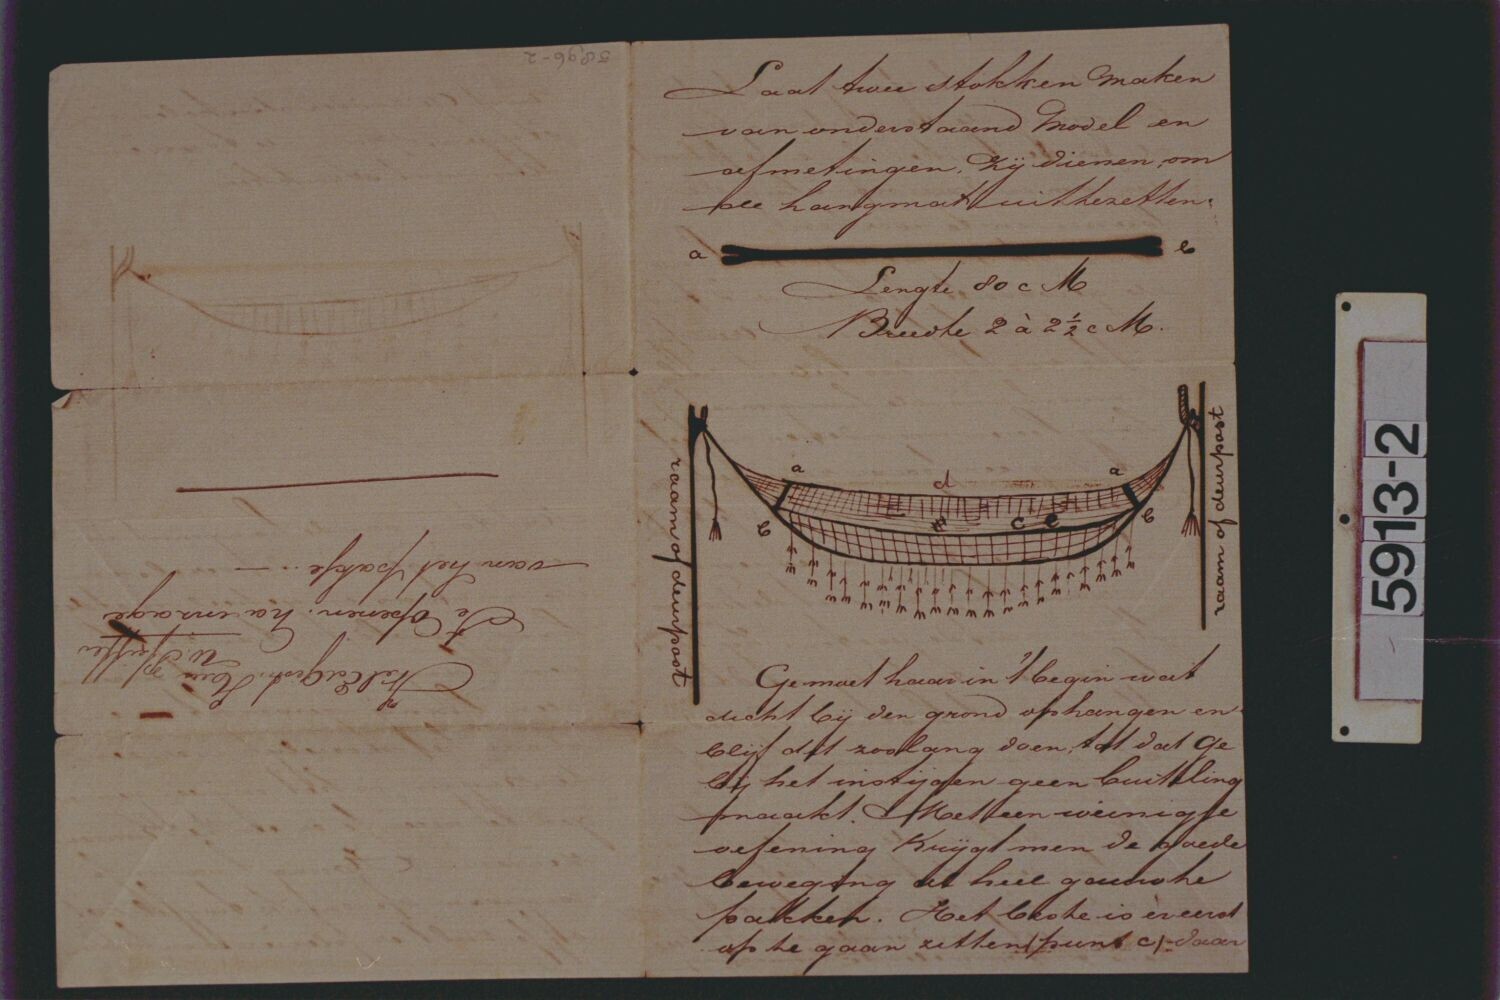 Laat twee stokken maken
van onderstaand Model en
afmetingen. Zij dienen om
de hangmat uittezetten.
a
b
Lengte 80 c M
Breedte 2 à 2½ c M.
raam of deurpost
a
d
a
b
c
e
b
raam of deurpost
Ge moet haar in 't begin wat
dicht bij den grond ophangen en
blijf dit zoolang doen, tot dat Ge
bij het instijgen geen buiteling
maakt. Met een weinigje
oefening krijgt men de goede
beweging al heel gauw te
pakken. Het beste is er eerst
op te gaan zitten (punt c) - daar
WelEdgest. Heer
Te Openen. havenzage
van het pakje. —
5896-2
5913-2